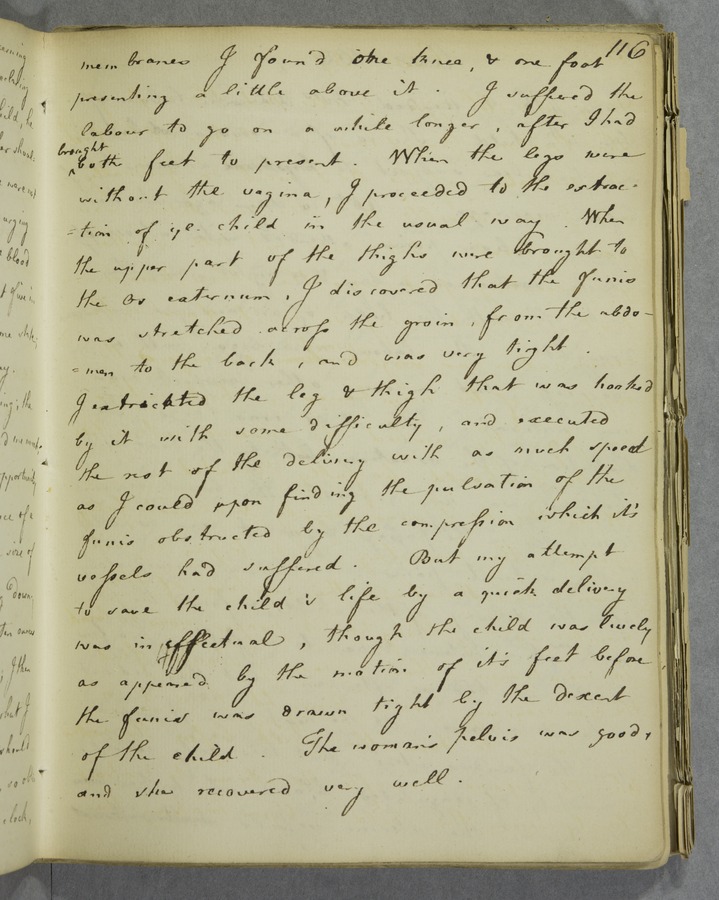 116
membranes I found one knee, & one foot
presenting a little above it. I suffered the
labour to go on a while longer, after I had
brought
^both feet to present. When the legs were
without the vagina, I proceeded to the extrac-
=tion of ye. child in the usual way. When
the upper part of the thighs were brought to
the Os externum, I discovered that the funis
was stretched across the groin, from the abdo-
=men to the back, and was very tight.
I extricated the leg & thigh that was hooked
by it with some difficulty, and executed
the rest of the delivery with as much speed
as I could upon finding the pulsation of the
funis obstructed by the compression which it's
vessels had suffered. But my attempt
to save the child's life by a quick delivery
was ineffectual, though the child was lively
as appeared by the motion of it's feet before
the funis was drawn tight by the descent
of the child. The woman's pelvis was good,
and she recovered very well.